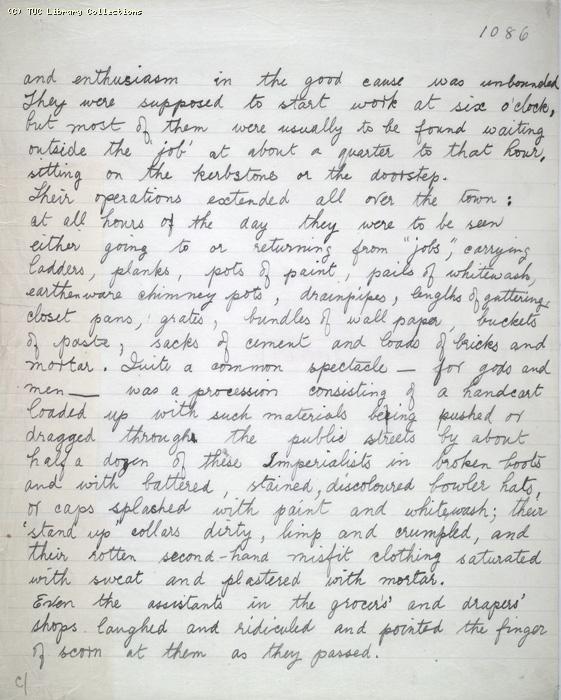 (C) TUC Library Collections
1086
and enthusiasm in the good cause was unbounded
They were supposed to start work at six o'clock,
but most of them were usually to be found waiting
outside the 'job' at about a quarter to that hour,
sitting on the kerbstone or the doorstep.
Their operations extended all over the town :
at all hours of the day they were to be seen
either going to or returning from "jobs", carrying
ladders, planks, pots of paint, pails of whitewash,
earthenware chimney pots, drainpipes, lengths of guttering,
closet pans, grates, bundles of wall paper, buckets
of paste, sacks of cement and loads of bricks and
mortar. Quite a common spectacle — for gods and
men — was a procession consisting of a handcart
loaded up with such materials being pushed or
dragged through the public streets by about
half a dozen of these Imperialists in broken boots
and with battered, stained, discoloured bowler hats,
or caps splached with paint and whitewash; their
'stand up' collars dirty, limp and crumpled, and
their rotten second-hand misfit clothing saturated
with sweat and plastered with mortar.
Even the assistants in the grocers' and drapers'
shops laughed and ridiculed and pointed the finger
of scorn at them as they passed.
c/